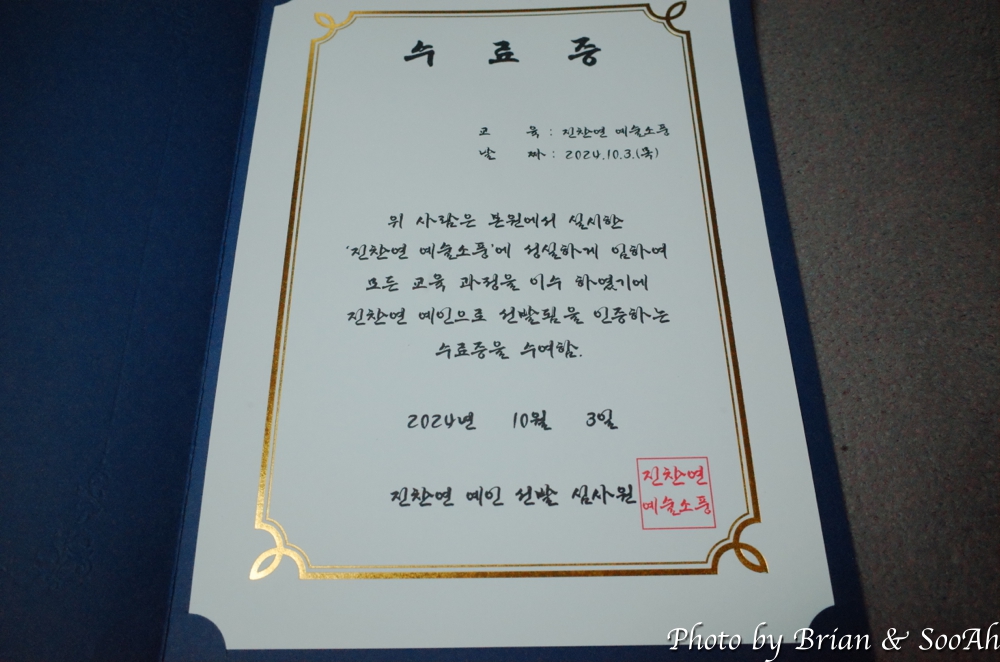 수 료 증
교 육 : 진찬연 예술소풍
날 짜 : 2024.10.3.(목)
위 사람은 본원에서 실시한
'진찬연 예술소풍'에 성실하게 임하여
모든 교육 과정을 이수 하였기에
진찬연 예인으로 선발됨을 인증하는
수료증을 수여함.
2024년 10월 3일
진찬연 예인 선발 심사원
진찬연
예술소풍
Photo by Brian & SooAh